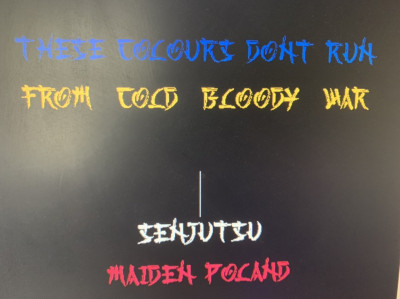 THESE COLOURS DONT RUN
FROM COLD BLOODY WAR
SENJUTSU
MAIDEN POLAND